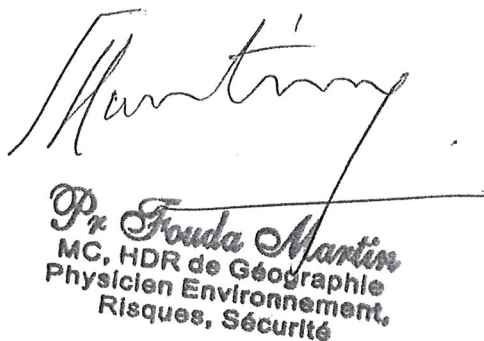 Martin
Pr Fouda Martin
MC, HDR de Géographie
Physicien Environnement,
Risques, Sécurité